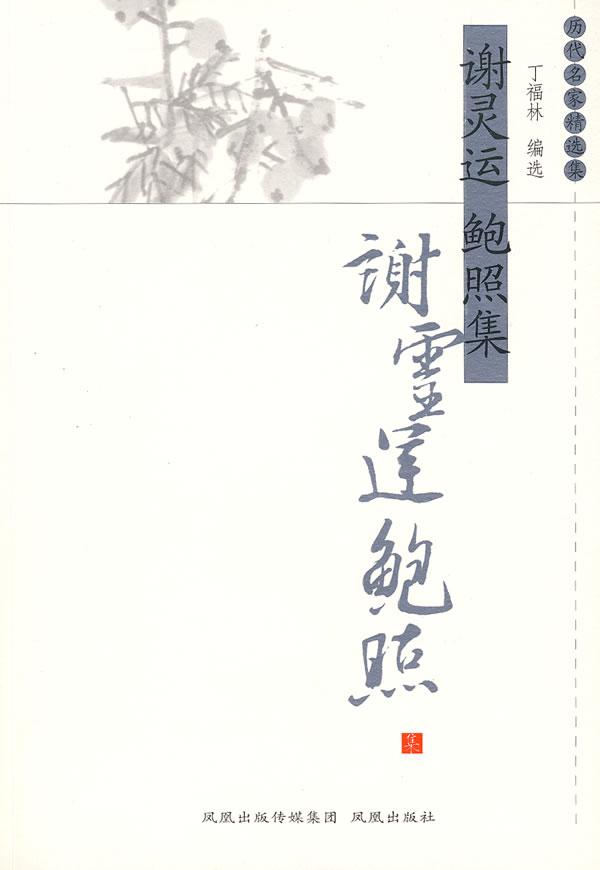 历代名家精选集
丁福林 编选
谢灵运 鲍照集
謝靈運鮑照
集
凤凰出版传媒集团 凤凰出版社